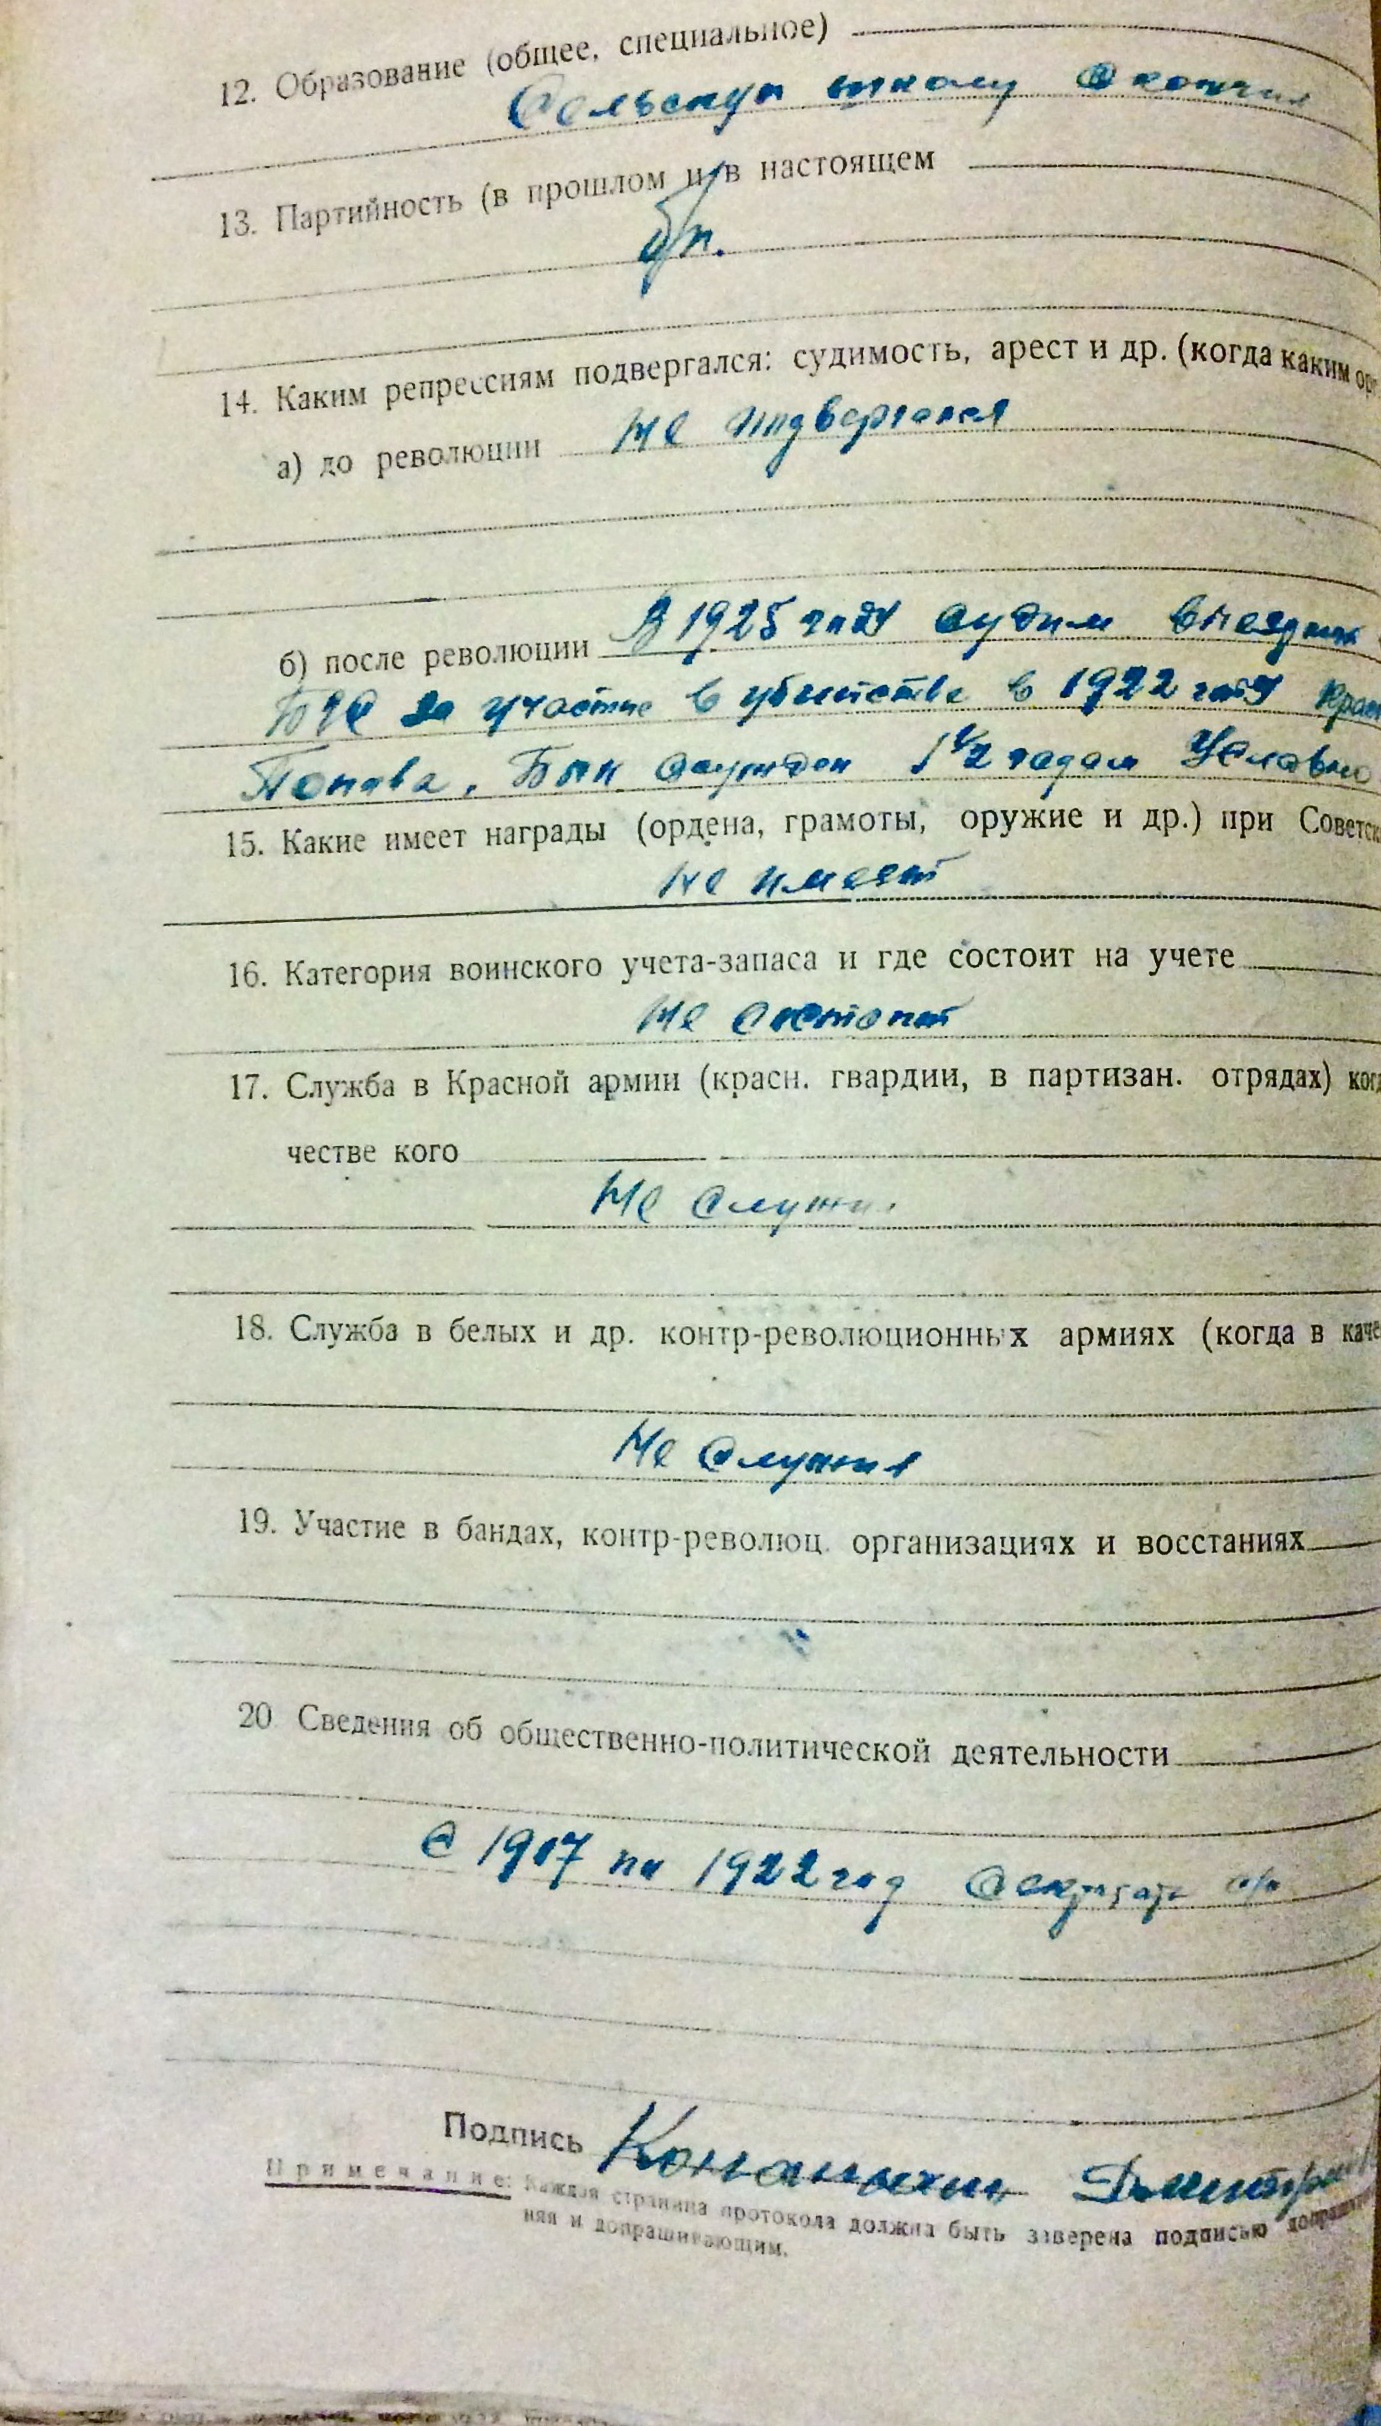 12. Образование (общее, специальное)
Сельскую школу окончил
13. Партийность (в прошлом и в настоящем
б/п.
14. Каким репрессиям подвергался: судимость, арест и др. (когда каким
а) до революции не подвергался
б) после революции В 1925 году судим
за участие в убийстве в 1922 году
Попова. Был осужден 1 1/2 годам Условно
15. Какие имеет награды (ордена, грамоты, оружие и др.) при Советск
не имеет
16. Категория воинского учета-запаса и где состоит на учете
не состоит
17. Служба в Красной армии (красн. гвардии, в партизан. отрядах) ког
честве кого
Не служил
18. Служба в белых и др. контр-революционных армиях (когда в каче
Не служил
19. Участие в бандах, контр-революц. организациях и восстаниях
20 Сведения об общественно-политической деятельности
С 1917 по 1922 год секретарь
Подпись Конаныхин Дмитрий
Примечание: Каждая страница протокола должна быть заверена подписью допраши
няя и допрашивающим.